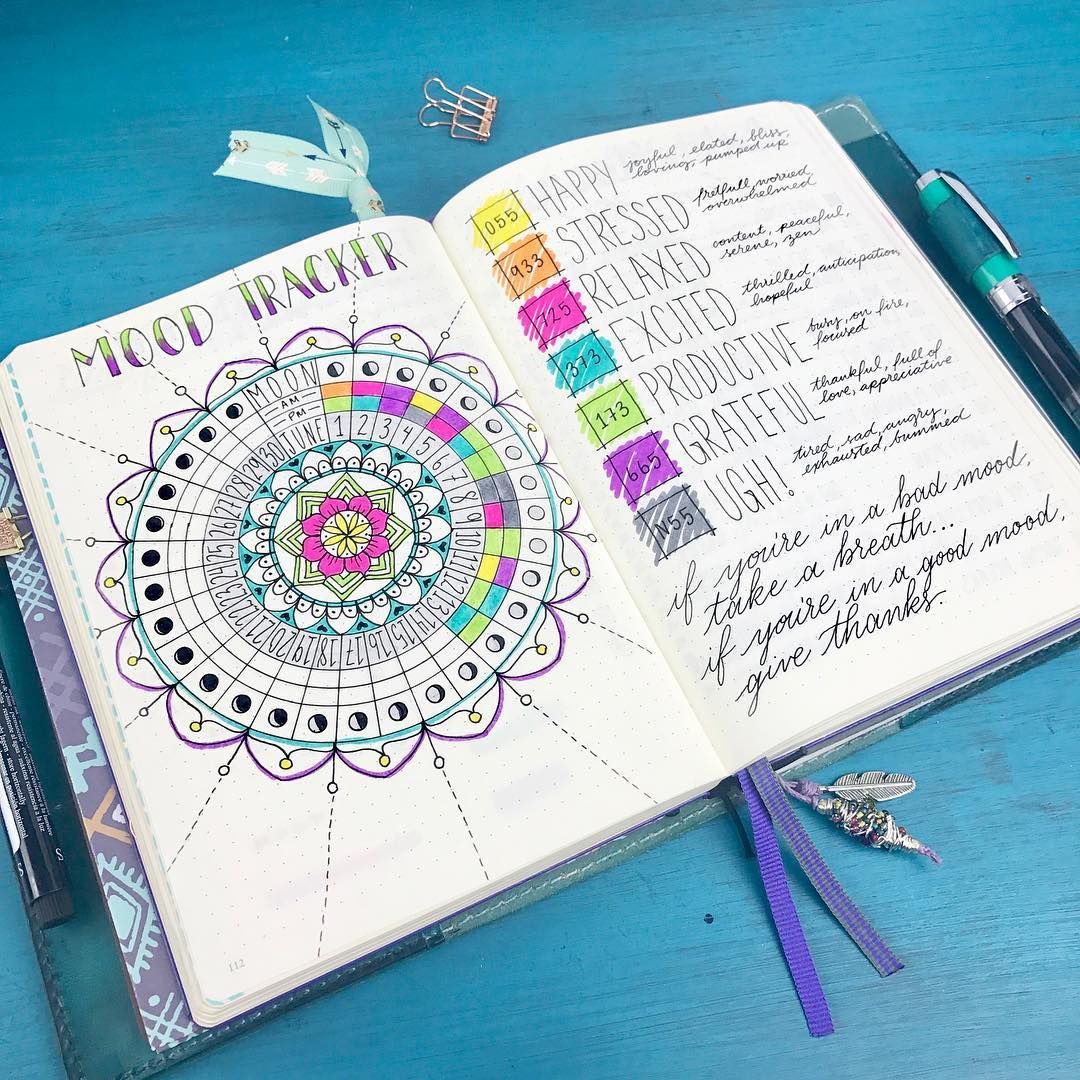 MOOD TRACKER
MOON
AM
PM
JUNE
1 2 3 4 5 6 7 8 9 10 11 12 13 14 15 16 17 18 19 20 21 22 23 24 25 26 27 28 29 30
112
055 HAPPY joyful, elated, bliss,
loving, pumped up
933 STRESSED fretfull, worried,
overwhelmed
725 RELAXED content, peaceful,
serene, zen
373 EXCITED thrilled, anticipation,
hopeful
173 PRODUCTIVE busy, on fire,
focused
665 GRATEFUL thankful, full of
love, appreciative
N55 UGH! tired, sad, angry,
exhausted, bummed
if you're in a bad mood,
take a breath...
if you're in a good mood,
give thanks.